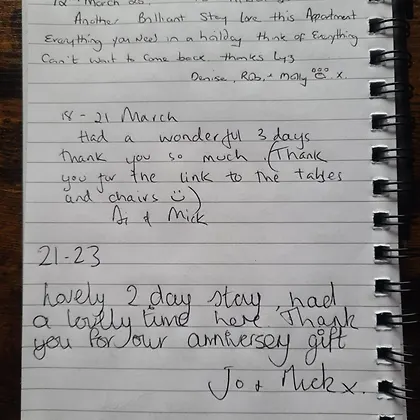 March
Another Brilliant Stay love this Appartment
Everything you Need in a holiday think of Everything
Can't wait to Come back. thanks
Denise, Rob, + Molly x.
18 - 21 March
Had a wonderful 3 days
thank you so much. (Thank
you for the link to the tables
and chairs ☺)
& Mick
21-23
Lovely 2 day stay, had
a lovlly time here. Thank
you for our anniversey gift
Jo & Mick x.